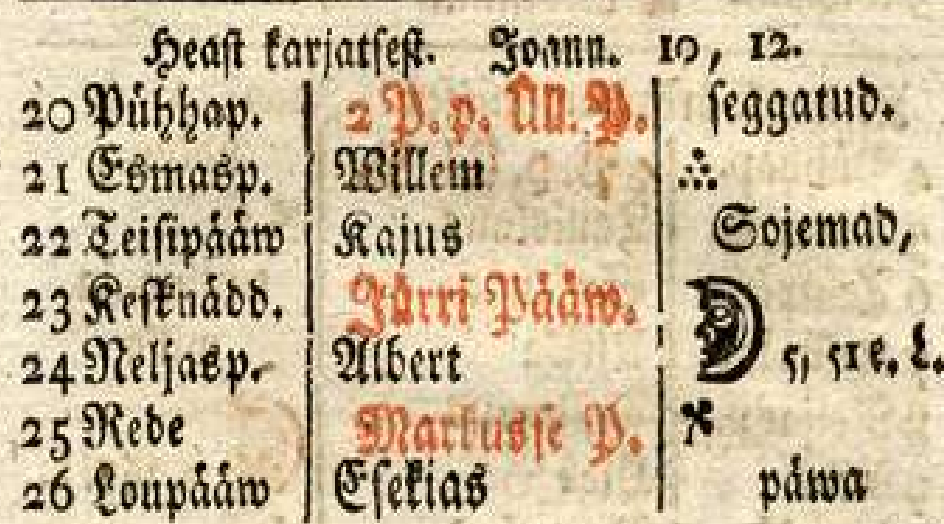 Heast karjatsest. Joann. 10, 12.
20 Pühhap. 2 P. p. Ül. P. seggatud.
21 Esmasp. Willem
22 Teisipääw Kajus Sojemad,
23 Kesknädd. Jürri Pääw.
24 Neljasp. Albert 5, 51 E. L.
25 Rede Markusse P.
26 Loupääw Esekias päwa